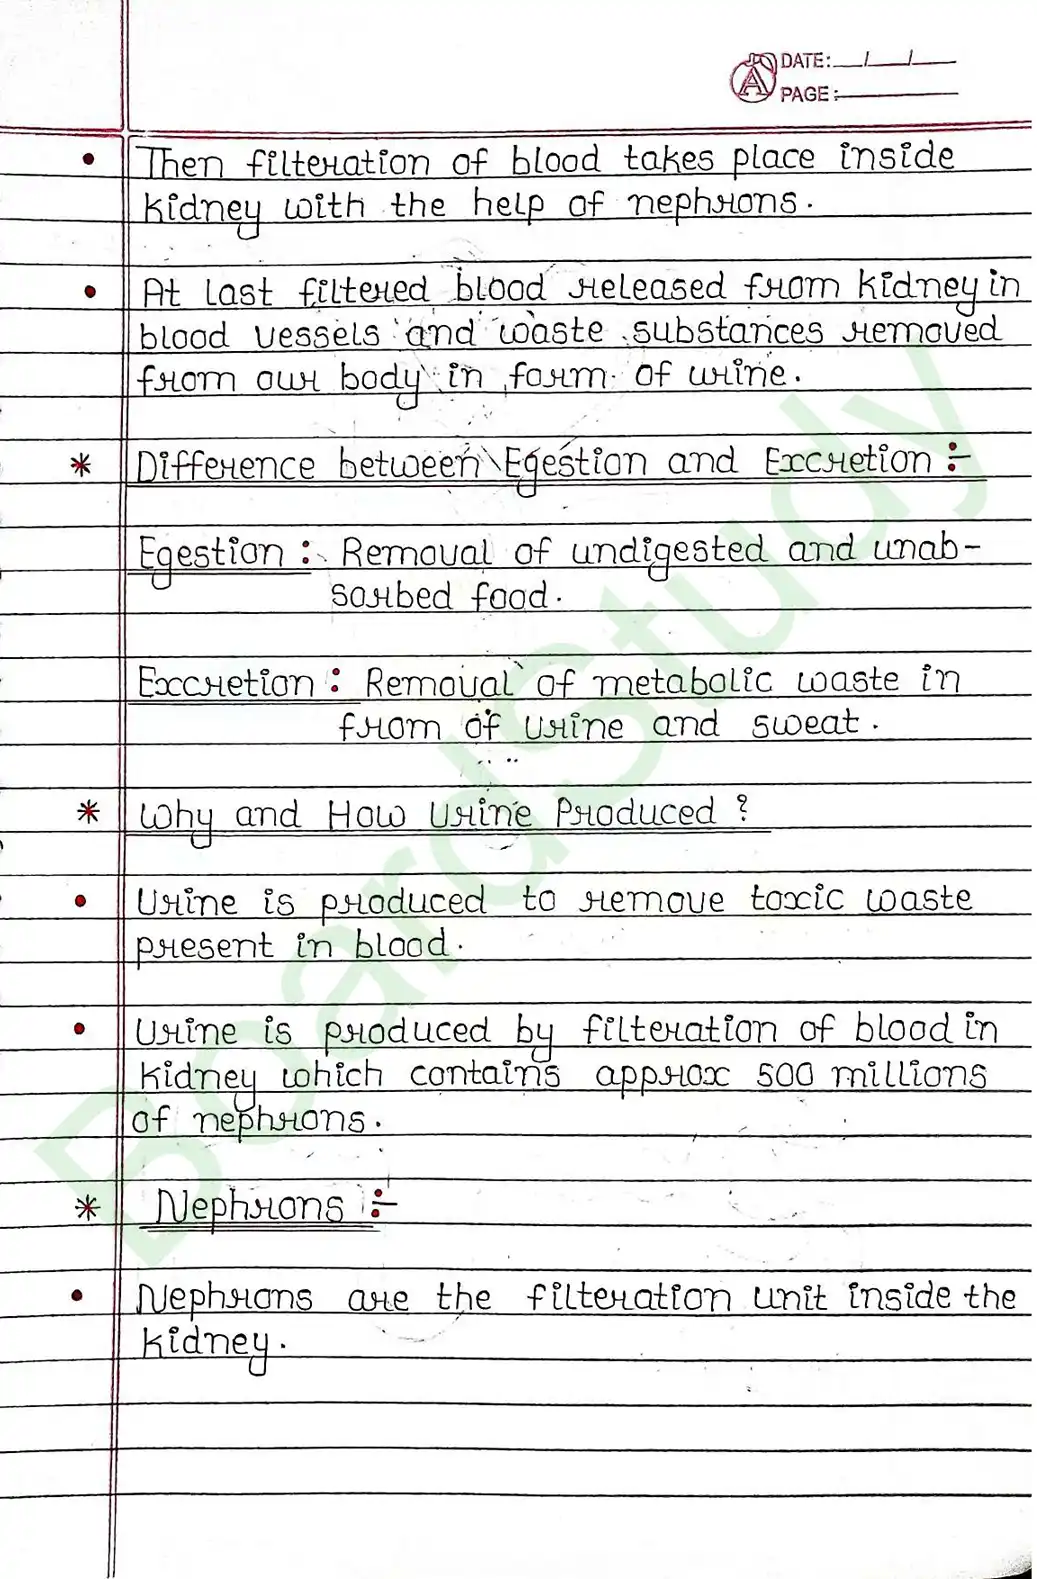 DATE: / /
PAGE:
• Then filteration of blood takes place inside
kidney with the help of nephrons.
• At last filtered blood released from kidney in
blood vessels and waste substances removed
from our body in form of urine.
* Difference between Egestion and Excretion :-
Egestion : Removal of undigested and unab-
sorbed food.
Excretion : Removal of metabolic waste in
from of urine and sweat.
* Why and How Urine Produced ?
• Urine is produced to remove toxic waste
present in blood.
• Urine is produced by filteration of blood in
kidney which contains approx 500 millions
of nephrons.
* Nephrons :-
• Nephrons are the filteration unit inside the
kidney.
BoardStudy